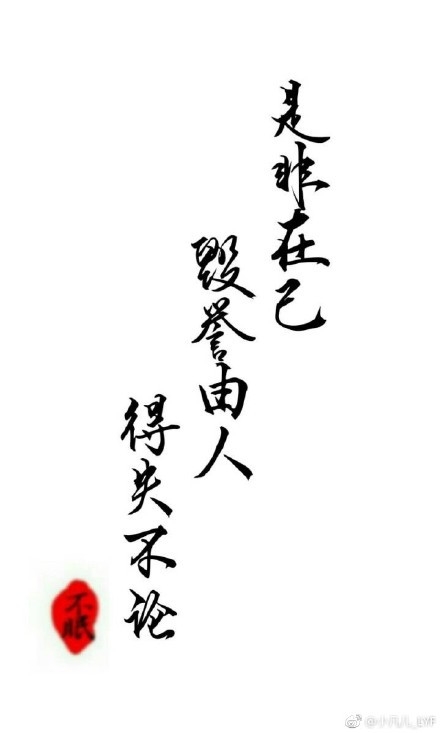 是非在己
毁誉由人
得失不论
不眠
@小凡儿_BYF